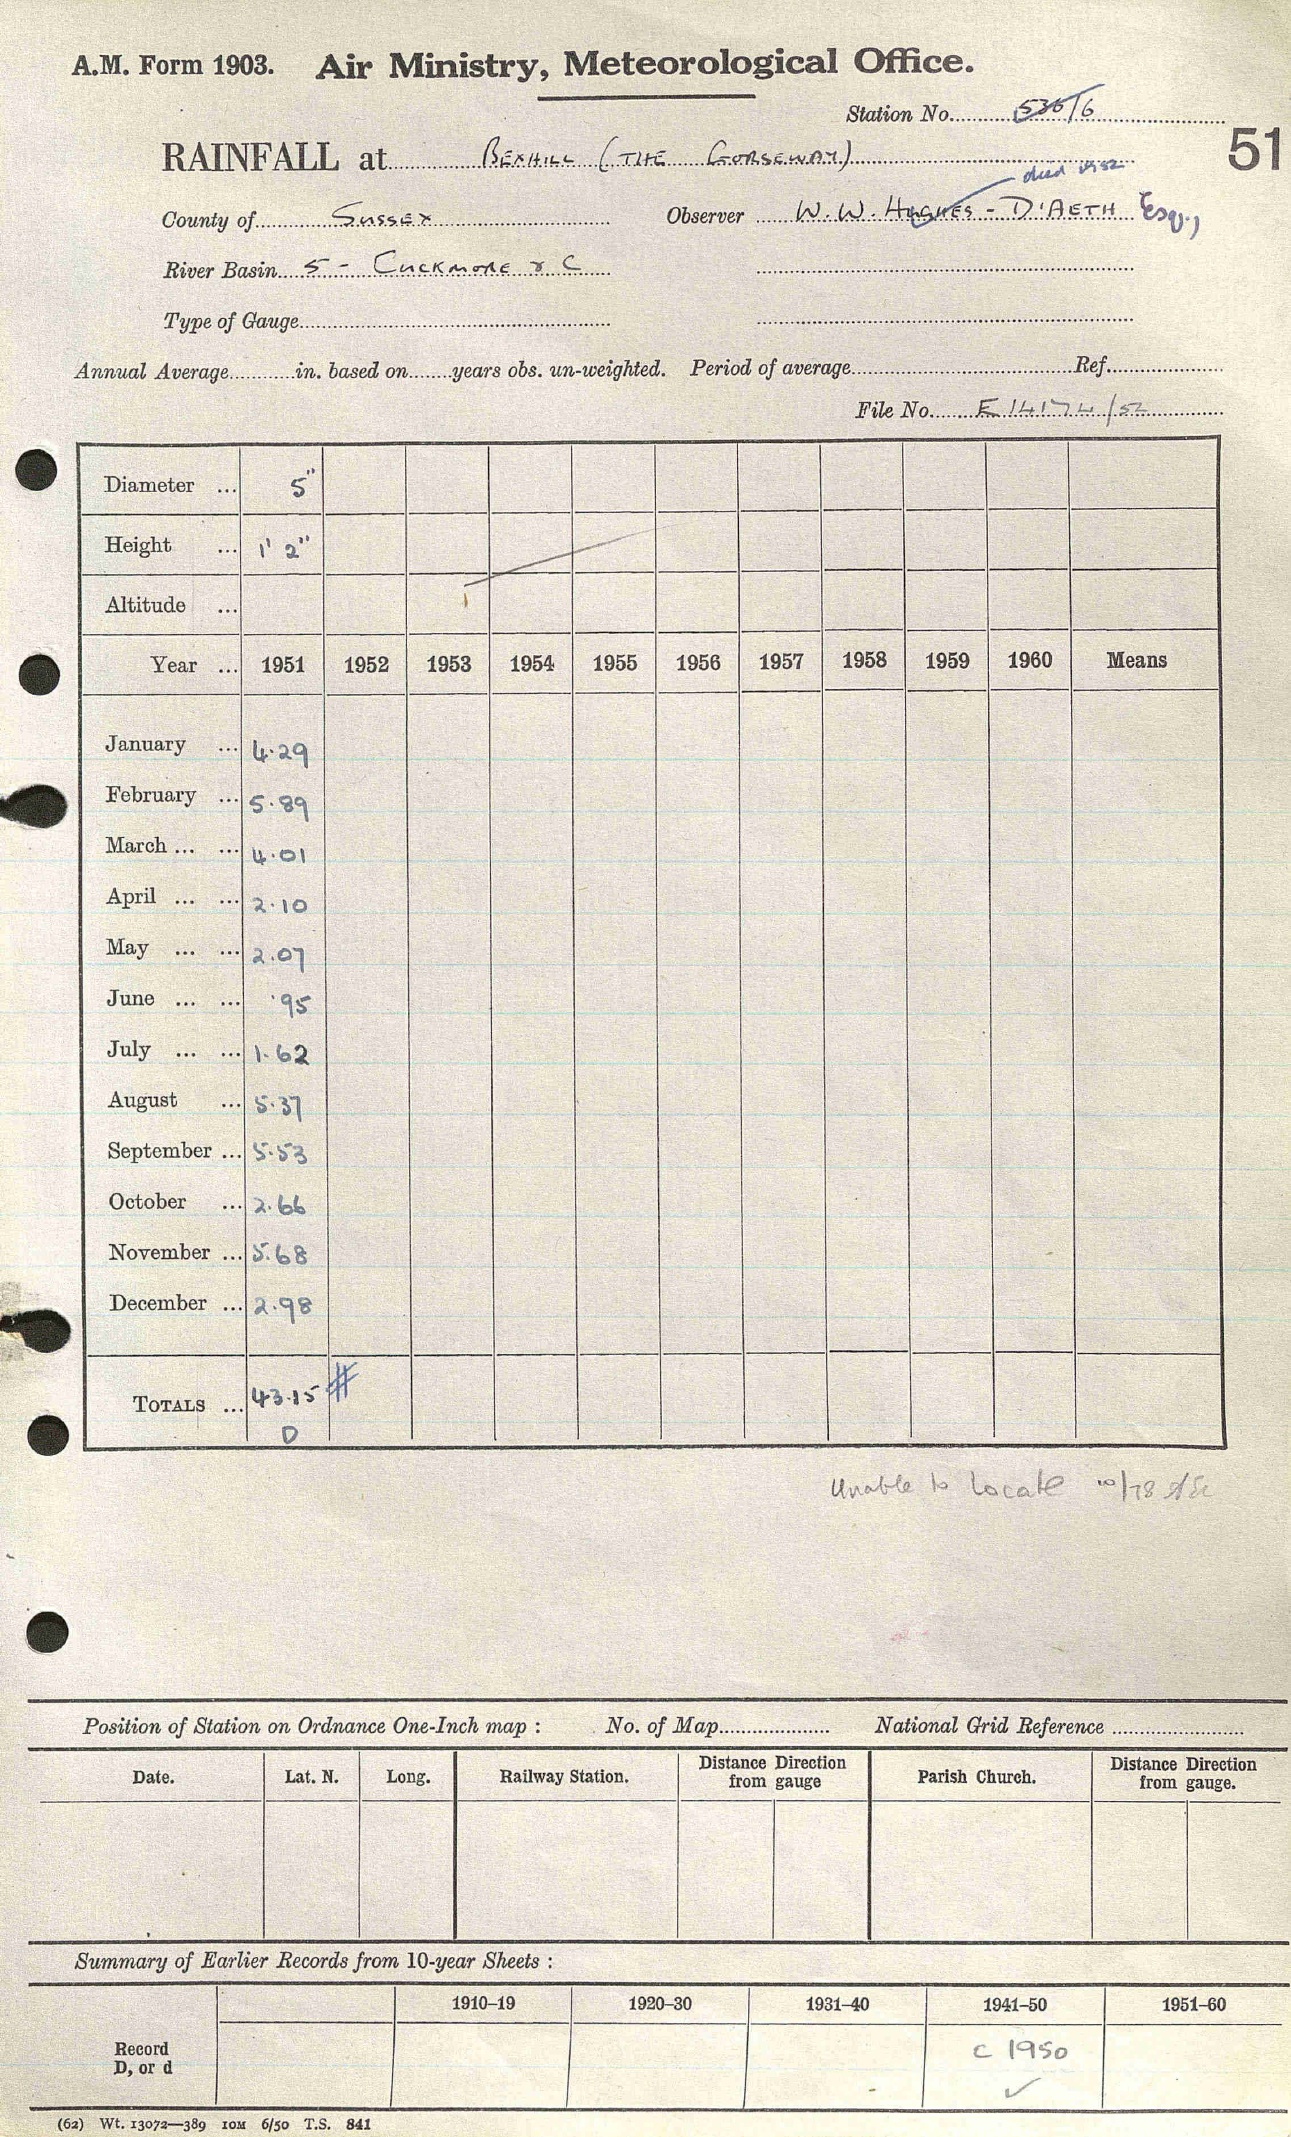 A.M. Form 1903. Air Ministry, Meteorological Office.
Station No. 536/6
51
RAINFALL at BEXHILL (THE GORSEWAY)
died 1952
County of SUSSEX Observer W. W. HUGHES - D'AETH Esq.,
River Basin 5 - CUCKMORE & C
Type of Gauge
Annual Average in. based on years obs. un-weighted. Period of average Ref.
File No. E 14174/52
Diameter ... 5"
Height ... 1' 2"
Altitude ...
Year ... 1951 1952 1953 1954 1955 1956 1957 1958 1959 1960 Means
January ... 4.29
February ... 5.89
March ... ... 4.01
April ... ... 2.10
May ... ... 2.07
June ... ... .95
July ... ... 1.62
August ... 5.37
September ... 5.53
October ... 2.66
November ... 5.68
December ... 2.98
TOTALS ... 43.15 #
D
Unable to Locate 10/78
Position of Station on Ordnance One-Inch map : No. of Map National Grid Reference
Date. Lat. N. Long. Railway Station. Distance Direction from gauge Parish Church. Distance Direction from gauge.
Summary of Earlier Records from 10-year Sheets :
1910–19 1920–30 1931–40 1941–50 1951–60
Record
D, or d
c 1950
✓
(62) Wt. 13072—389 10M 6/50 T.S. 841